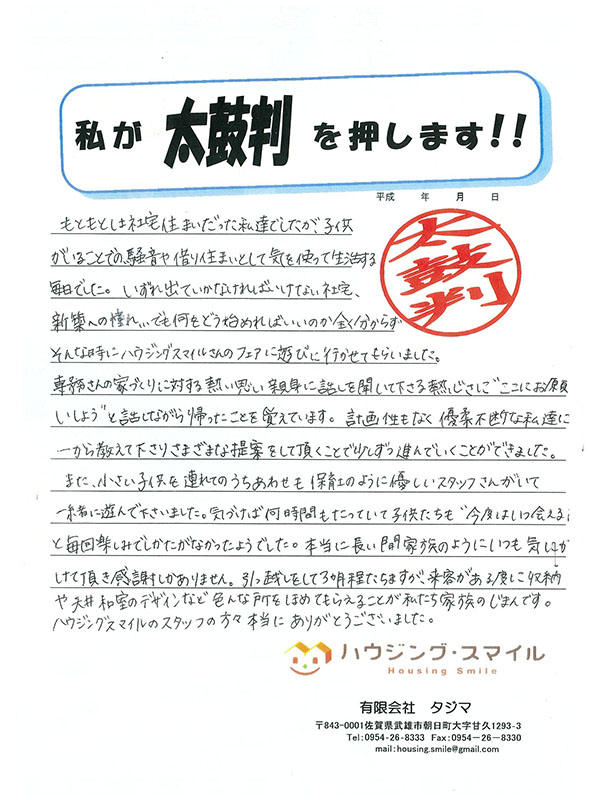 私が 太鼓判 を押します!!
平成 年 月 日
太鼓判
もともとは社宅住まいだった私達でしたが、子供
がいることでの騒音や借り住まいとして気を使って生活する
毎日でした。いずれ出ていかなければいけない社宅、
新築への憧れ...でも何をどう始めればいいのか全く分からず
そんな時にハウジングスマイルさんのフェアに遊びに行かせてもらいました。
専務さんの家づくりに対する熱い思い 親身に話しを聞いて下さる熱心さに“ここにお願
いしよう”と話しながら帰ったことを覚えています。計画性もなく優柔不断な私達に
一から教えて下さりさまざまな提案をして頂くことで少しずつ進んでいくことができました。
また、小さい子供を連れてのうちあわせも保育士のように優しいスタッフさんがいて
一緒に遊んで下さいました。気づけば何時間もたっていて子供たちも“今度はいつ会える
と毎回楽しみでしかたがなかったようでした。本当に長い間家族のようにいつも気にか
けて頂き感謝しかありません。引っ越しをして3ヶ月程たちますが、来客がある度に収納
や天井 和室のデザインなど色んな所をほめてもらえることが私たち家族のじまんです。
ハウジングスマイルのスタッフの方々本当にありがとうございました。
ハウジング・スマイル
Housing Smile
有限会社 タジマ
〒843-0001佐賀県武雄市朝日町大字甘久1293-3
Tel:0954-26-8333 Fax:0954-26-8330
mail:housing.smile@gmail.com